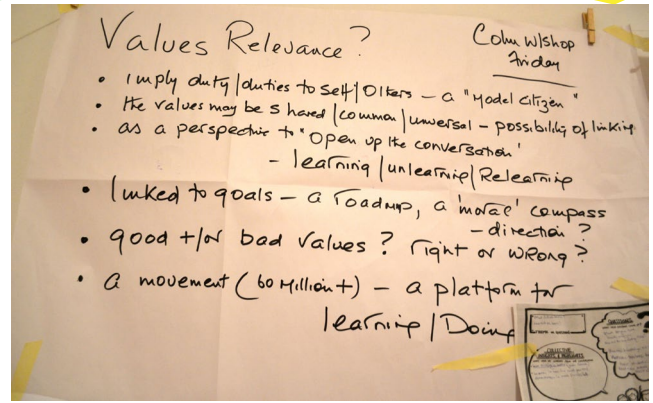 Values Relevance?
Colm W/Shop
Friday
• Imply duty/duties to self/others – a "Model Citizen"
• the values may be shared/common/universal – possibility of linking
• as a perspective to "open up the conversation'
– learning/unlearning/Relearning
• linked to goals – a roadmap, a 'moral' compass
– direction?
• good +/or bad values? right or wrong?
• a movement (60 Million+) – a platform for
learning/Doing
COLLECTIVE